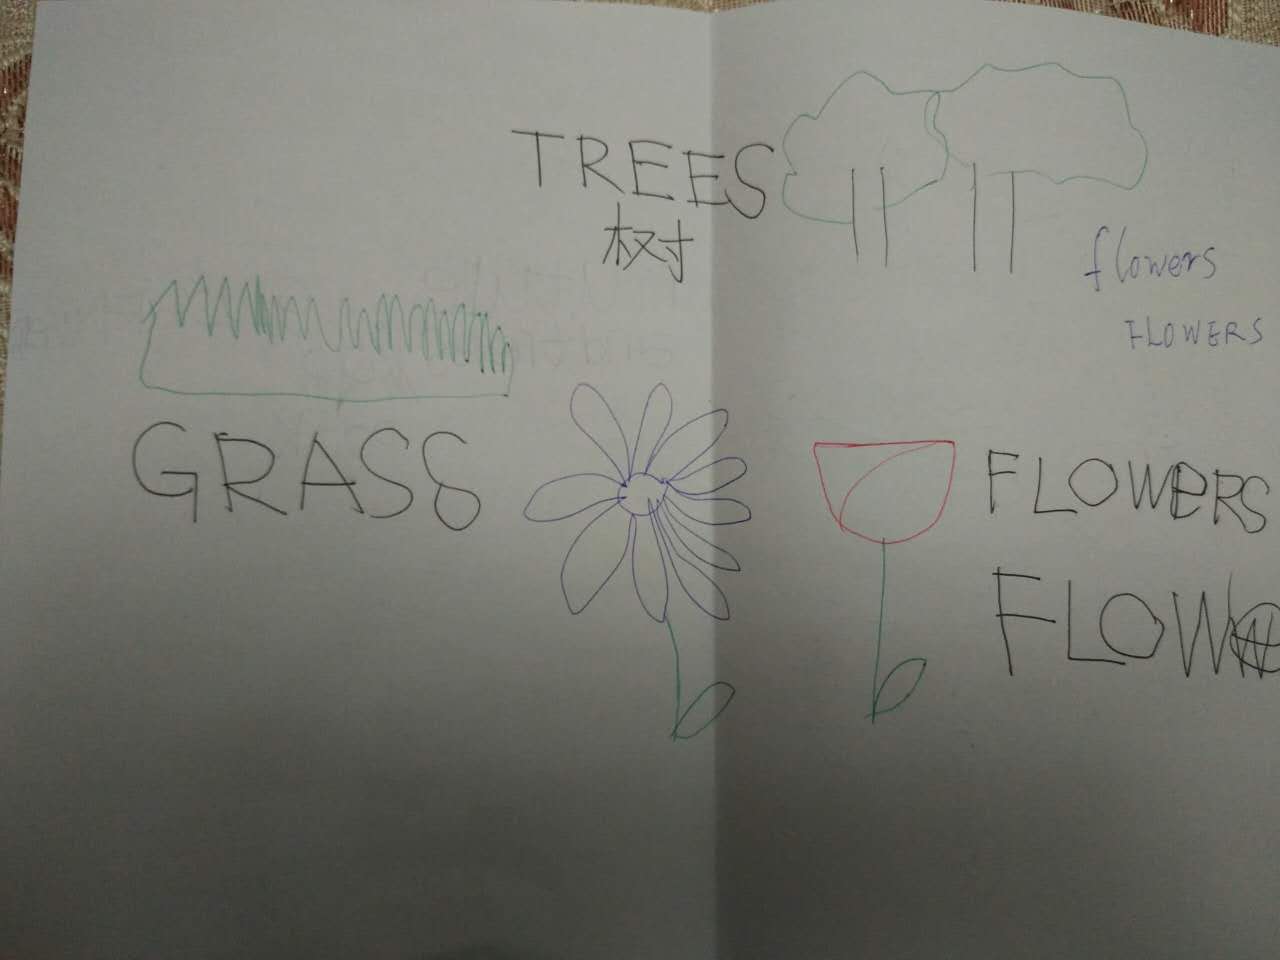 TREES
树
flowers
FLOWERS
GRASS
FLOWERS
FLOW